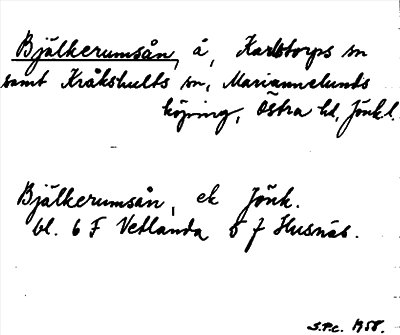 Bjälkerumsån, å, Karlstorps sn
samt Kråkshults sn, Mariannelunds
köping, Östra hd, Jönk.l.
Bjälkerumsån, ek Jönk.
bl. 6 F Vetlanda 5 f Husnäs.
S.P.C. 1958.